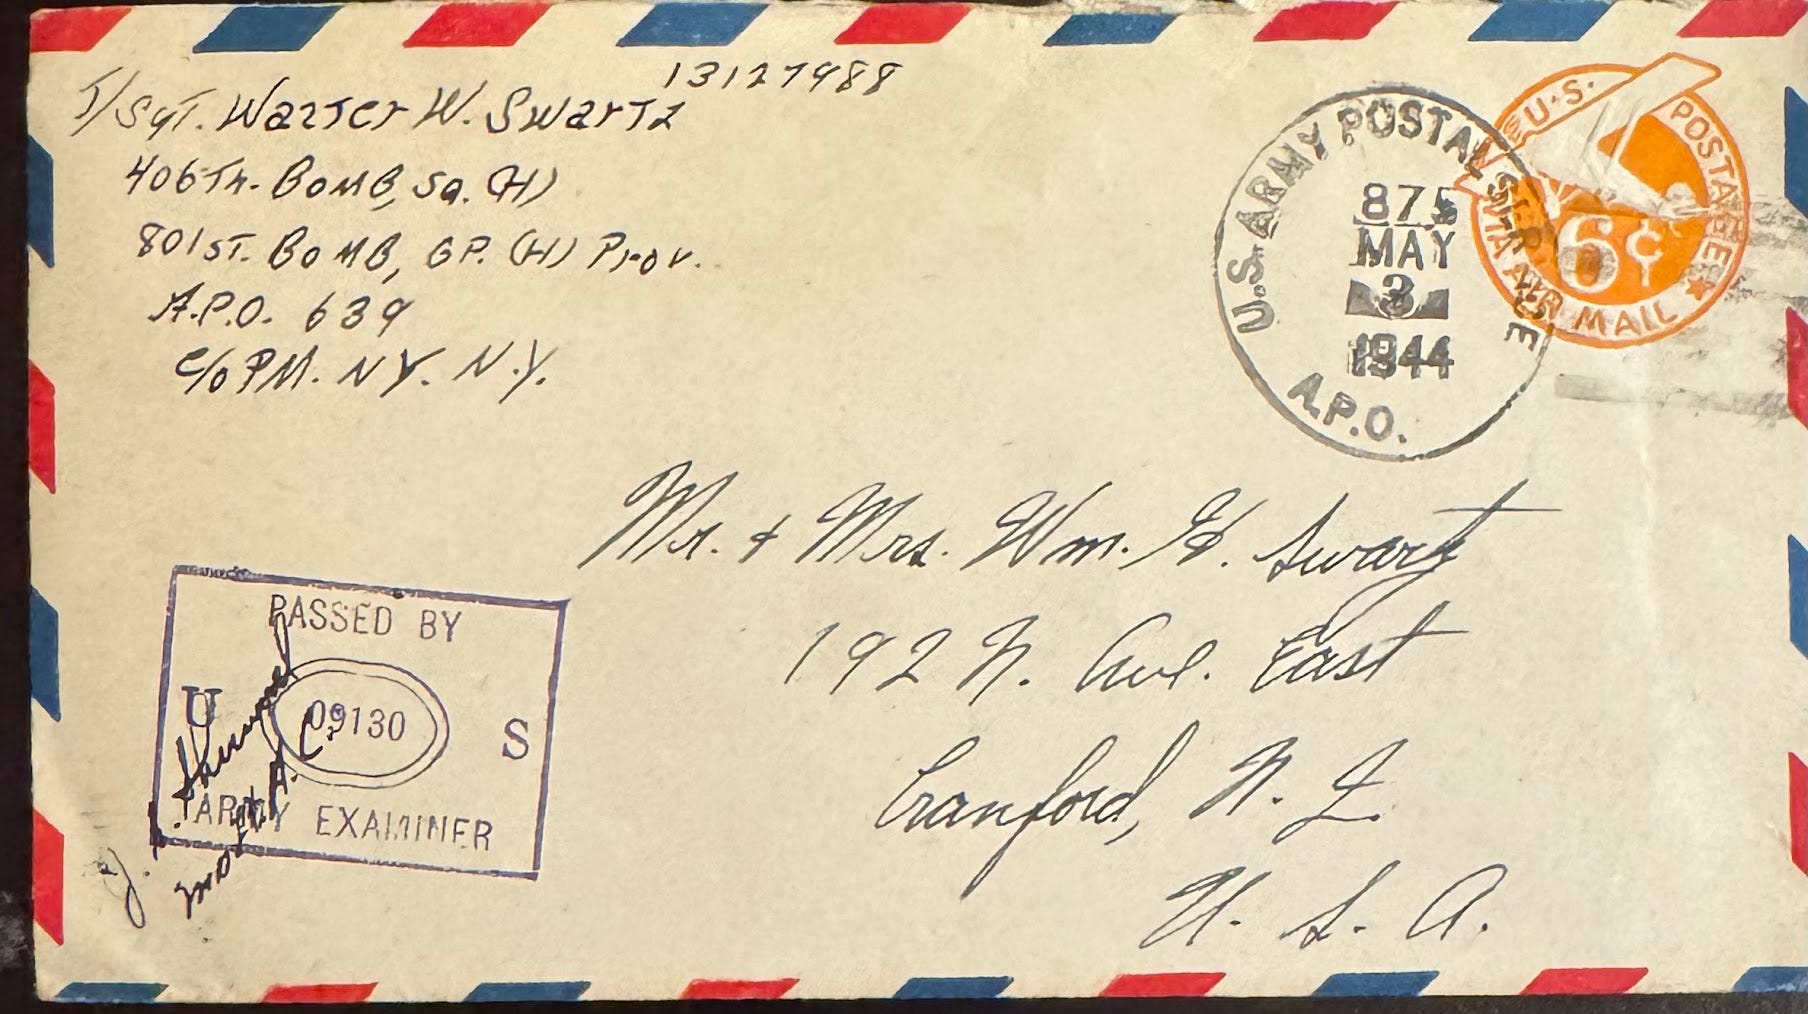 13127988
T/Sgt. Walter W. Swartz
406Th. Bomb, Sq. (H)
801ST. Bomb, GP. (H) Prov.
A.P.O. 639
c/o PM. NY. N.Y.
U.S. ARMY POSTAL SERVICE
875
MAY
3
1944
A.P.O.
U.S. POSTAGE
6¢
VIA AIR MAIL
Mr. + Mrs. Wm. H. Swartz
192 N. Ave. East
Cranford, N. J.
U. S. A.
PASSED BY
U 09130 S
ARMY EXAMINER
2nd Lt. A.C.